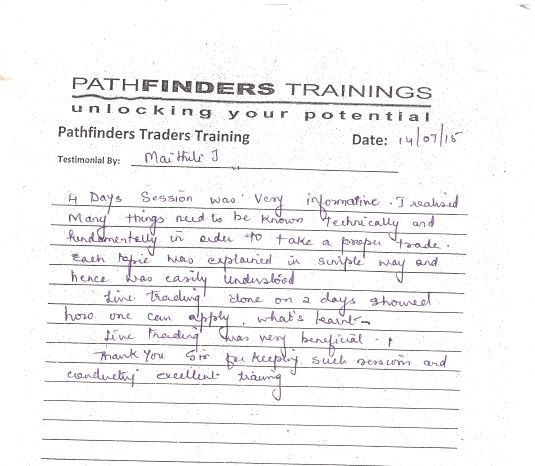 PATHFINDERS TRAININGS
unlocking your potential
Pathfinders Traders Training Date: 14/07/15
Testimonial By: Maithili J
4 Days Session was Very informative. I realised
Many things need to be known technically and
fundamentally in order to take a proper trade.
Each topic was explained in simple way and
hence was easily understood
Live trading done on 2 days showed
how one can apply, what's learnt
Live trading was very beneficial.
Thank You Sir for keeping such sessions and
conducting excellent training